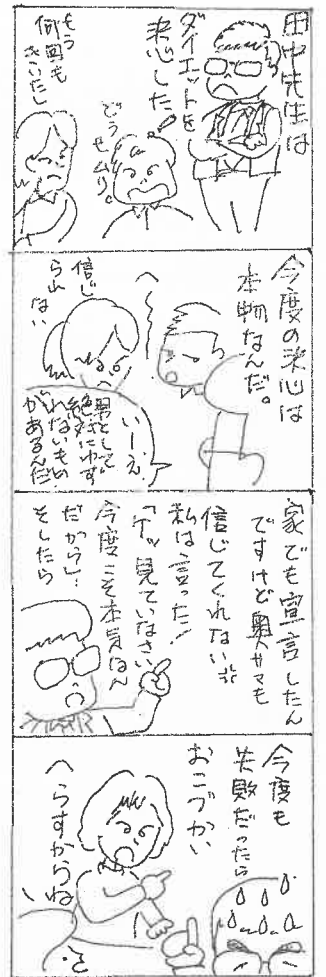 田中先生は
ダイエットを
決心した!
どうせムリ。
もう
何回も
きいたし
今度の決心は
本物なんだ。
へ〜〜
信じ
られ
ない
いーえ
男として
絶対にゆず
れないもの
があるんだ
家でも宣言したん
ですけど奥サマも
信じてくれない
私は言った!
「ケッ見ていなさい
今度こそ本気なん
だから」…
そしたら
今度も
失敗だったら
おこづかい
へらすからね